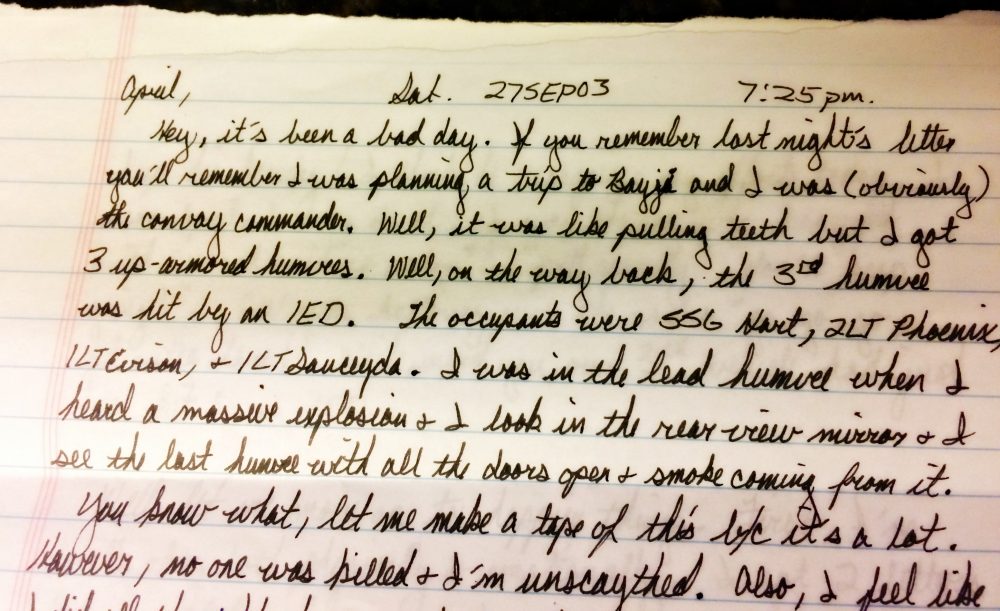 April, Sat. 27SEP03 7:25pm.
Hey, it's been a bad day. If you remember last night's letter
you'll remember I was planning a trip to Bayji and I was (obviously)
the convoy commander. Well, it was like pulling teeth but I got
3 up-armored humvees. Well, on the way back, the 3rd humvee
was hit by an IED. The occupants were SSG Hart, 2LT Phoenix,
1LT Evison, + 1LT Sauceyda. I was in the lead humvee when I
heard a massive explosion + I look in the rear view mirror + I
see the last humvee with all the doors open + smoke coming from it.
You know what, let me make a tape of this b/c it's a lot.
However, no one was killed + I'm unscaythed. Also, I feel like